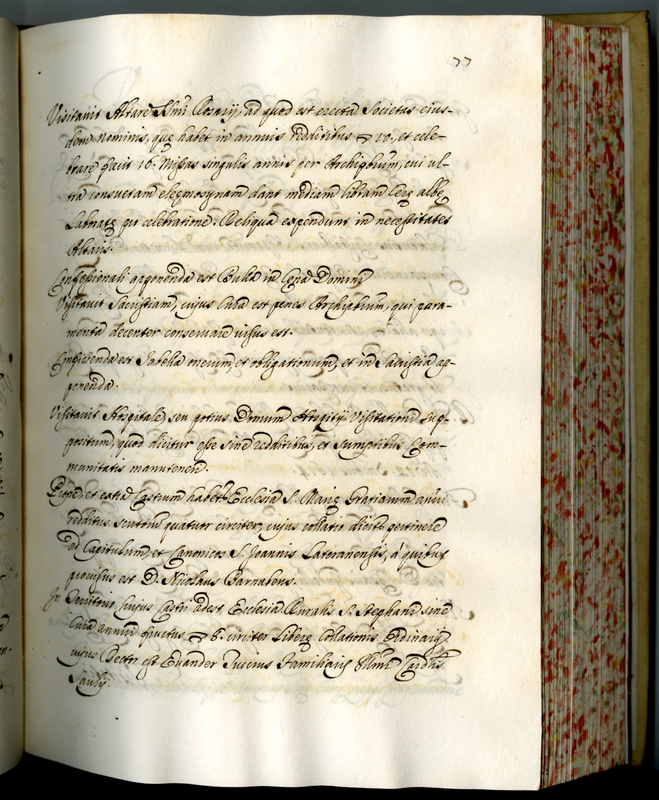 77
Visitavit Altare SSmi Rosarij, ad quod est erecta Societas eius-
dem nominis, quę habet in annuis redditibus ▽ 10., et cele-
brare facit 16. Missas singulis annis per Archipbrum, cui ul-
tra consuetam elegmosynam dant mediam libram Cerę albę
laboratę pro celebratione. Reliqua expendunt in necessitates
Altaris.
Confessionali apponenda est Bulla in Cęna Domini
Visitavit Sacristiam, cujus Cura est penes Archipbrum, qui para-
menta decenter conservare iussus est.
Conficienda est Tabella onerum, et obligationum, et in Sacristia ap-
ponenda.
Visitavit Hospitale, seu potius Domum Hospitij Visitationi sup-
positum, quod dicitur esse sine redditibus, et sumptibus Com-
munitatis manuteneri.
Prope, et extra Castrum habetr Ecclesia S. Marię Gratiarum annui
redditus scutorum quatuor circiter, cujus collatio dicitr pertinere
ad Capitulum, et Canonicos S. Joannis Lateranensis, á quibus
provisus est D. Nicolaus Barnabeus.
In Territorio hujus Castri adest Ecclesia Ruralis S. Stephani sine
Cura annui fructus ▽ 8. circiter Liberę Collationis Ordinarij,
cujus Rector est Evander Familiaris Illmi Cardlis
Saulij.